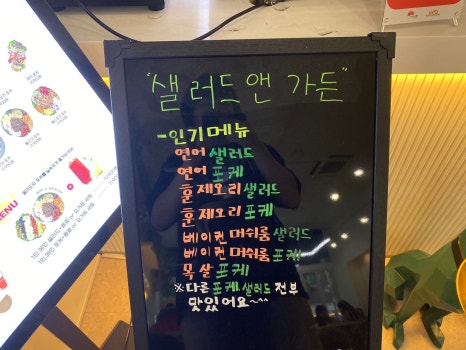 "샐러드앤 가든"
-인기메뉴
연어 샐러드
연어 포케
훈제오리 샐러드
훈제오리 포케
베이컨 머쉬룸 샐러드
베이컨 머쉬룸 포케
목살 포케
※다른 포케, 샐러드 전부
맛있어요~^^
MENU